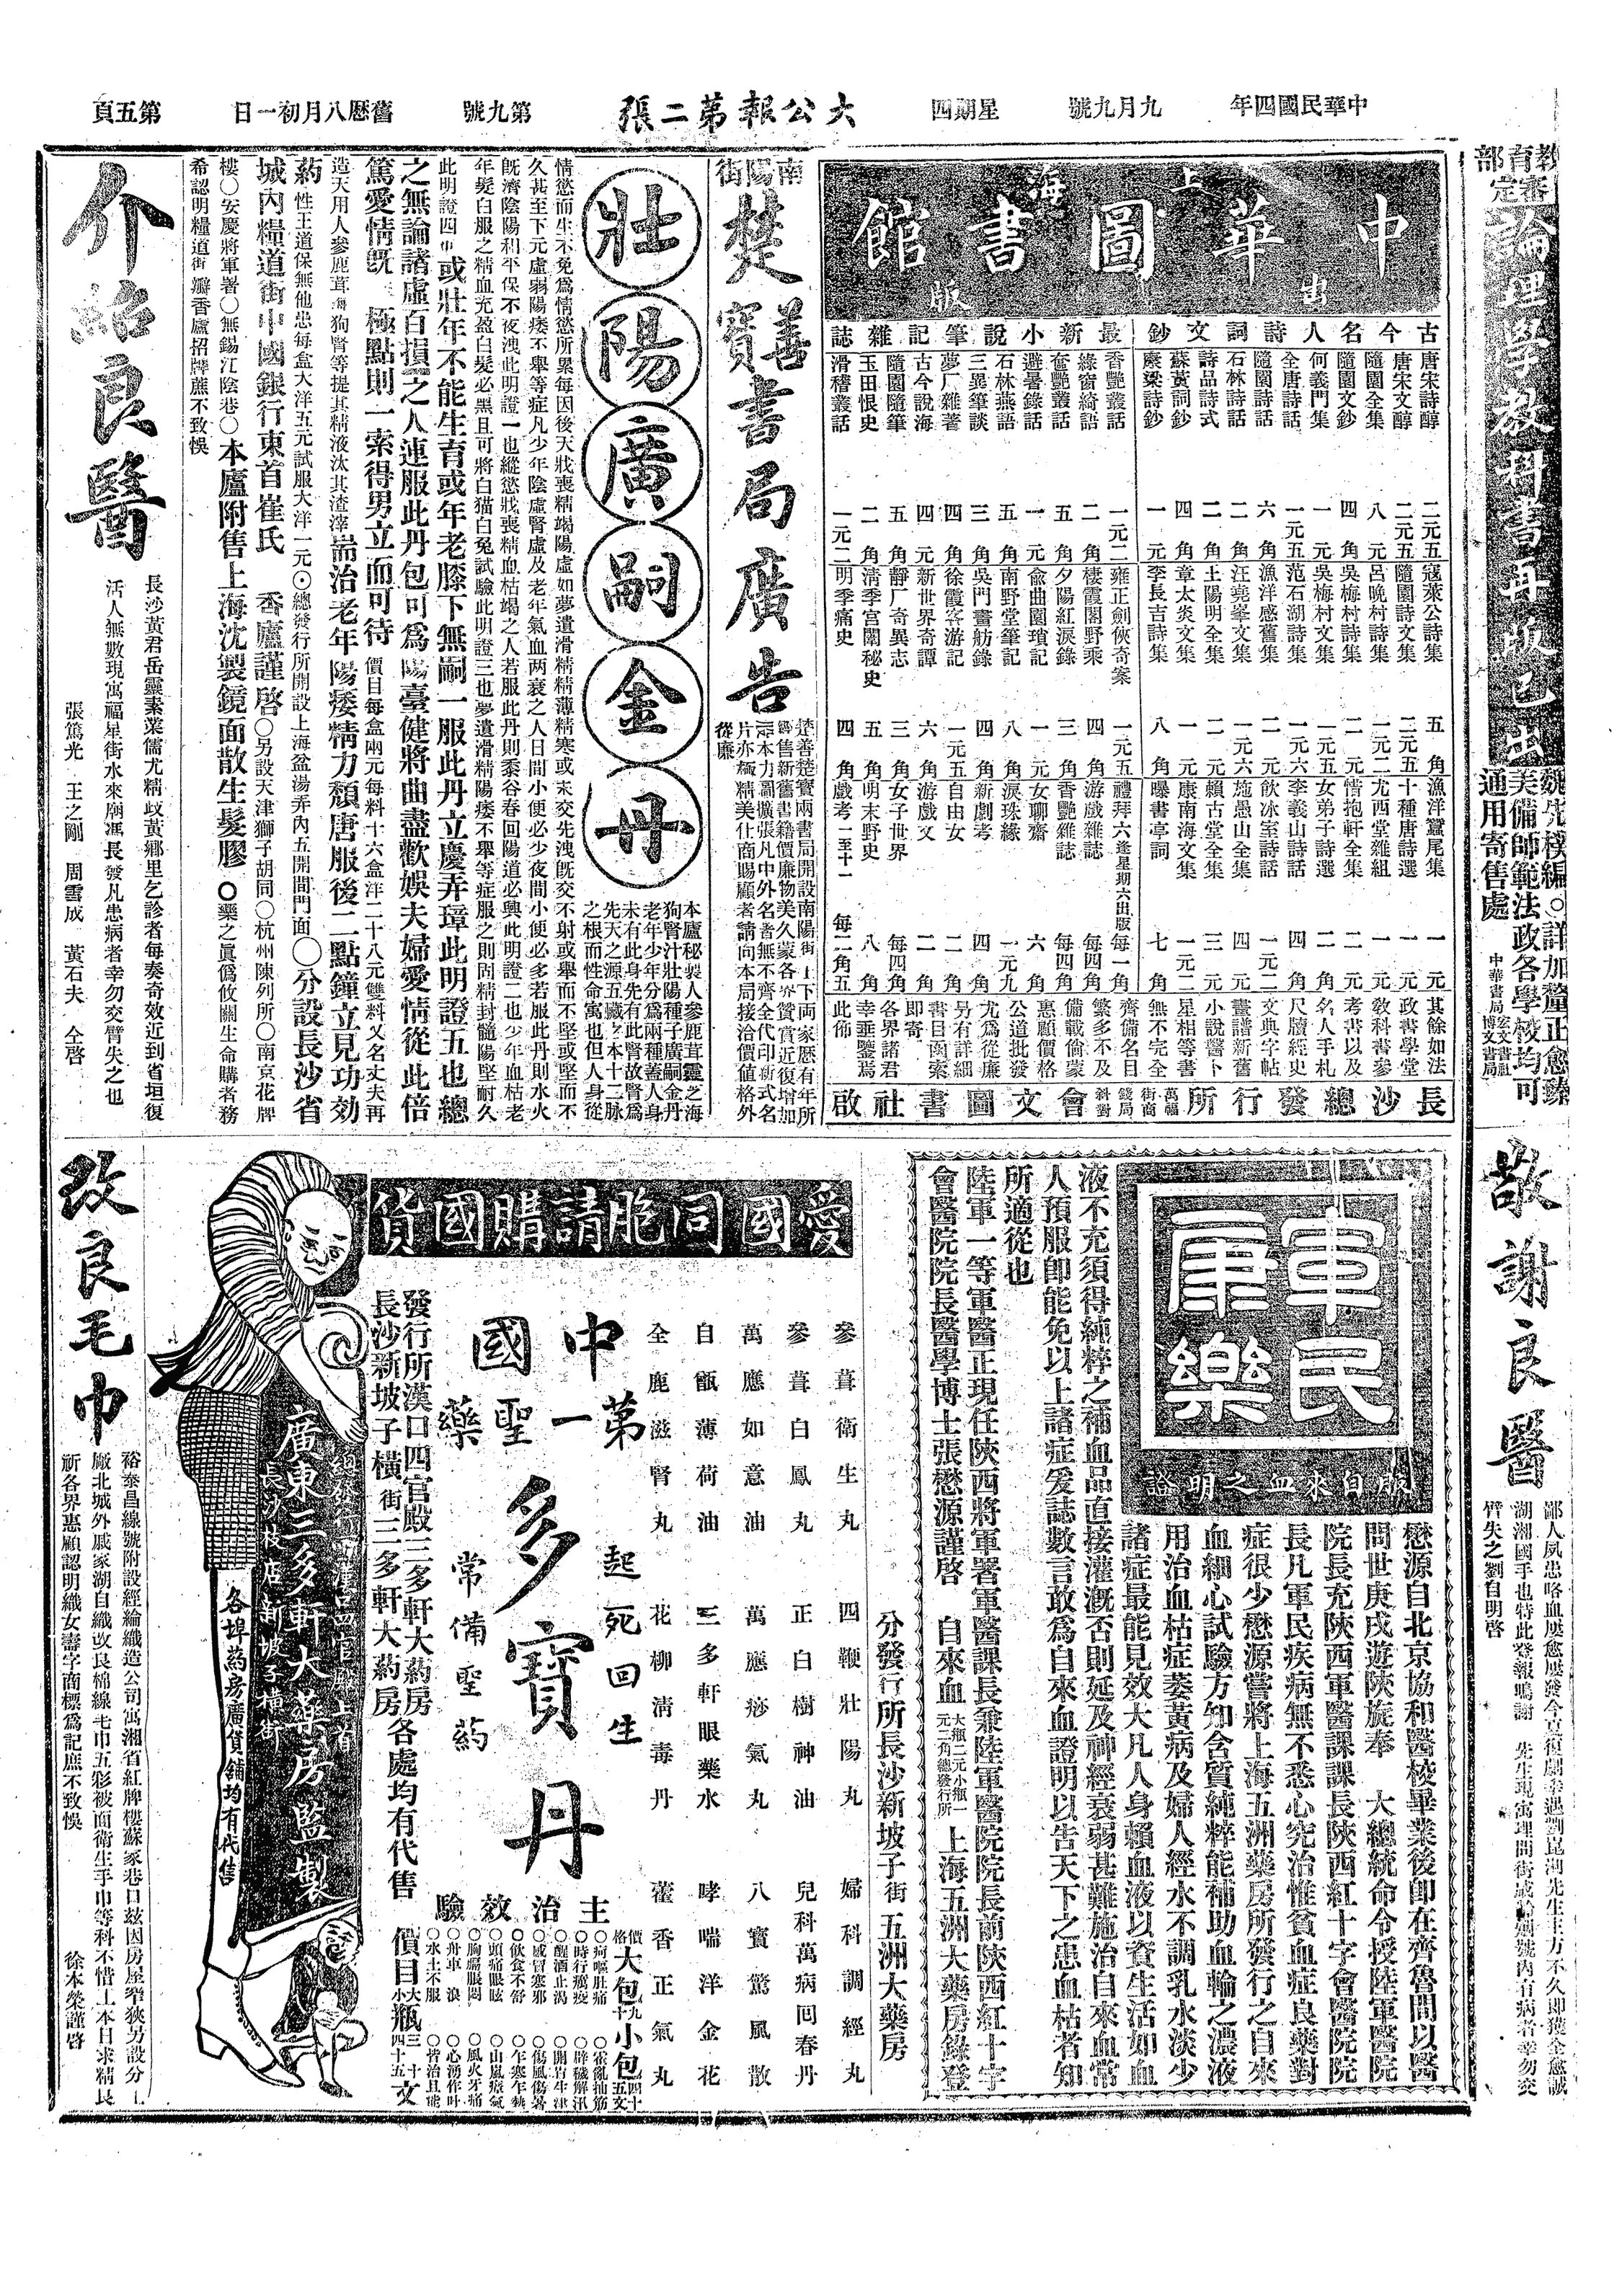 中華民國四年
九月九號
星期四
大公報第二張
第九號
舊曆八月初一日
第五頁
教育部審定
論理學教科書再版已出
詳加釐正愈臻
美備師範法政各學校均可
通用寄售處
敬謝良醫
上海
中華圖書館
出版
古今名人詩詞文鈔
唐宋詩醇
二元五
唐宋文醇
二元五
隨園全集
八元
隨園文鈔
四角
何義門集
一元
全唐詩話
一元五
隨園詩話
六角
石林詩話
二角
詩品詩式
二角
蘇黃詞鈔
四角
一元
寇萊公詩集
五角
隨園詩文集
呂晚村詩集
吳梅村詩集
二元
吳梅村文集
一元五
范石湖詩集
一元六
漁洋感舊集
二元
汪堯峯文集
一元六
王陽明全集
二元
章太炎文集
一元
李長吉詩集
八角
漁洋蠶尾集
一元
十種唐詩選
一元
尤西堂雜組
惜抱軒全集
二元
女弟子詩選
二角
李義山詩話
四角
飲冰室詩話
一元二
施愚山全集
四元
賴古堂全集
三元
康南海文集
一元二
曝書亭詞
七角
最新小說筆記雜誌
香艷叢話
一元二
綠窗綺語
二角
奮艷叢話
五角
避暑錄話
一元
石林燕語
五角
三異筆談
三角
夢厂雜著
四角
古今說海
四元
隨園隨筆
五角
玉田恨史
二角
滑稽叢話
一元二
雍正劍俠奇案
一元五
棲霞閣野乘
四角
夕陽紅淚錄
三角
俞曲園瑣記
一元
南野堂筆記
八角
吳門畫舫錄
四角
徐霞客游記
一元五
新世界奇譚
六角
靜厂奇異志
三角
清季宮闈秘史
五角
明季痛史
四角
禮拜六逢星期六出版
每一角
游戲雜誌
每四角
香艷雜誌
每四角
女聊齋
六角
淚珠緣
一元九
新劇考
四角
自由女
二角
游戲文
二角
女子世界
每四角
明末野史
八角
戲考一至十一
每二角五
其餘如法
政書學堂
教科書參
考書以及
名人手札
尺牘經史
文典字帖
畫譜新舊
小說醫卜
星相等書
無不完全
齊備名目
繁多不及
備載倘蒙
惠顧價格
公道批發
尤為從廉
另有詳細
書目函索
即寄
各界諸君
幸垂鑒焉
此佈
長沙總發行所
會文圖書社啟
南陽街
楚善寶書局廣告
楚善楚寶兩書局開設南陽街上下兩家歷有年所
售新舊書籍價廉物美久蒙各界贊賞近復增加
本力圖擴張凡中外名著無不齊全代印新式名
片亦極精美仕商賜顧者請向本局接洽價值格外
從廉
壯陽廣嗣金丹
本廬秘製人參鹿茸靈之海
狗腎汁壯陽種子廣嗣金丹
老年少年分為兩種蓋人身
未有此身先有此腎故腎為
先天之源五臟之本十二脈
之根而性命寓也但人身從
情慾而生不免為情慾所累每因後天戕喪精竭陽虛如夢遺滑精精薄精寒或未交先洩旣交不射或舉而不堅或堅而不
久甚至下元虛弱陽痿不舉等症凡少年陰虛腎虛及老年氣血两衰之人日間小便必少夜間小便必多若服此丹則水火
旣濟陰陽和平保不夜洩此明證一也縱慾戕喪精血枯竭之人若服此丹則黍谷春回陽道必興此明證二也少年血枯老
年髮白服之精血充盈白髮必黑且可將白猫白兔試驗此明證三也夢遺滑精陽痿不舉等症服之則固精封髓陽堅耐久
此明證四也或壯年不能生育或年老膝下無嗣一服此丹立慶弄璋此明證五也總
之無論諸虛百損之人連服此丹包可為陽臺健將曲盡歡娛夫婦愛情從此倍
篤愛情旣極點則一索得男立而可待價目每盒兩元每料十六盒洋二十八元雙料又名丈夫再
造天用人參鹿茸海狗腎等提其精液汰其渣滓耑治老年陽痿精力頹唐服後二點鐘立見功効
药性王道保無他患每盒大洋五元試服大洋一元⊙總發行所開設上海盆湯弄內五開間門面○分設長沙省
城內糧道街中國銀行東首崔氏 香廬謹啓○另設天津獅子胡同○杭州陳列所○南京花牌
樓○安慶將軍署○無錫江陰巷○本廬附售上海沈製鏡面散生髮膠○藥之真偽攸關生命購者務
希認明糧道街瓣香廬招牌庶不致悞
介紹良醫
長沙黃君岳靈素業儒尤精岐黃鄉里乞診者每奏奇效近到省垣復
活人無數現寓福星街水來廟馮長發凡患病者幸勿交臂失之也
張篤光 王之剛 周雪成 黃石夫 仝啓
軍民康樂
版自來血之明證
懋源自北京協和醫校畢業後卽在齊魯間以醫
問世庚戌遊陝旋奉 大總統命令授陸軍醫院
院長充陝西軍醫課課長陝西紅十字會醫院院
長凡軍民疾病無不悉心究治惟貧血症良藥對
症很少懋源嘗將上海五洲藥房所發行之自來
血細心試驗方知含質純粹能補助血輪之濃液
用治血枯症萎黃病及婦人經水不調乳水淡少
諸症最能見效大凡人身賴血液以資生活如血
液不充須得純粹之補血品直接灌溉否則延及神經衰弱甚難施治自來血常
人預服卽能免以上諸症爰誌數言敢為自來血證明以告天下之患血枯者知
所適從也
陸軍一等軍醫正現任陝西將軍署軍醫課長兼陸軍醫院院長前陝西紅十字
會醫院院長醫學博士張懋源謹啓 自來血大瓶二元小瓶一元二角總發行所上海五洲大藥房錄登
分發行所長沙新坡子街五洲大藥房
愛國同胞請購國貨
參茸衛生丸 四鞭壯陽丸 婦科調經丸
參茸白鳳丸 正白樹神油 兒科萬病囘春丹
萬應如意油 萬應痧氣丸 八寶驚風散
自甑薄荷油 三多軒眼藥水 哮喘洋金花
全鹿滋腎丸 花柳清毒丹 藿香正氣丸
中國
第一聖藥
多寶丹
起死回生
常備聖药
發行所漢口四官殿三多軒大药房
長沙新坡子橫街三多軒大药房
各處均有代售
主治效驗
價目
廣東三多軒大藥房監製
各埠药房廣貨舖均有代售
改良毛巾
裕泰昌線號附設經綸織造公司寓湘省紅牌樓蘇家巷口茲因房屋窄狹另設分工
廠北城外戚家湖自織改良棉線毛巾五彩被面衛生手巾等科不惜工本日求精良
祈各界惠顧認明織女壽字商標為記庶不致悞
徐本榮謹啓
鄙人夙患咯血屢愈屢發今夏復劇幸遇劉崑湖先生主方不久即獲全愈誠
湖湘國手也特此登報鳴謝
臂失之劉自明啓